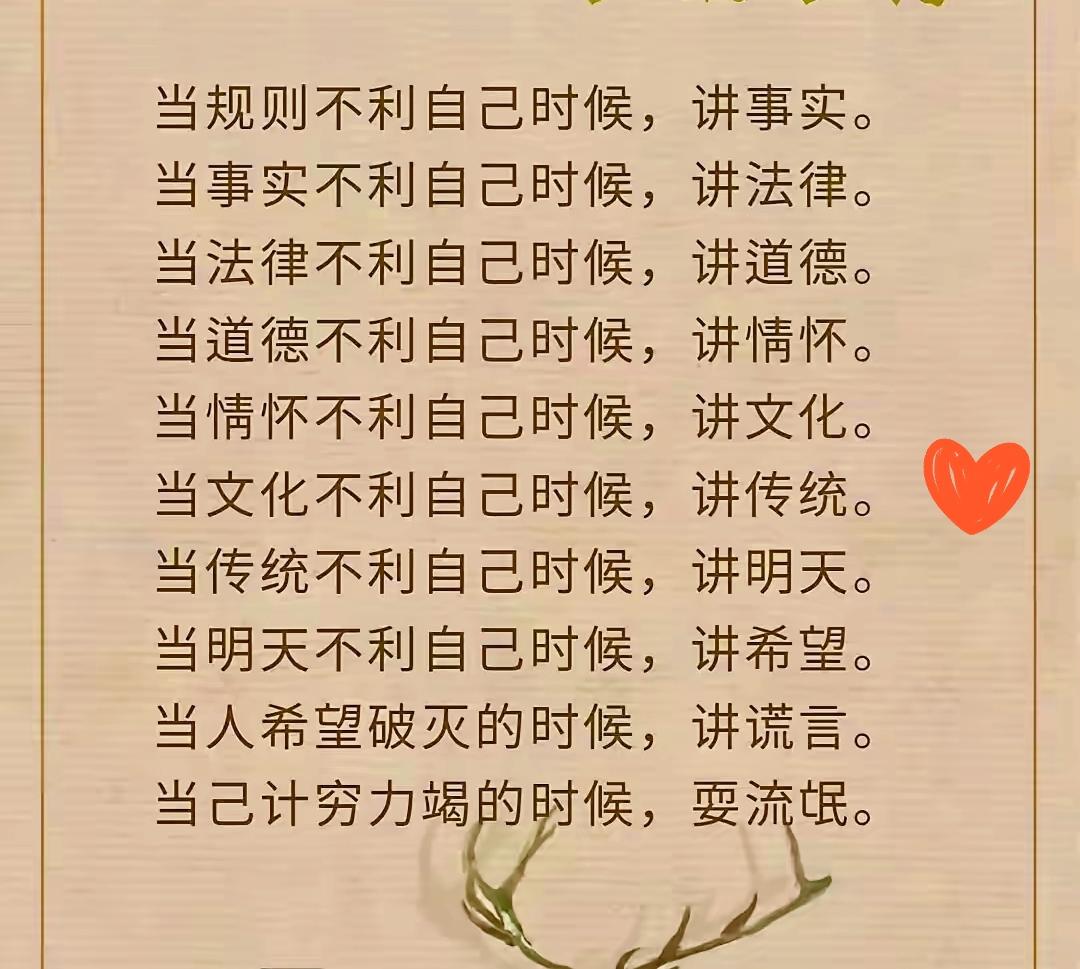 当规则不利自己时候，讲事实。
当事实不利自己时候，讲法律。
当法律不利自己时候，讲道德。
当道德不利自己时候，讲情怀。
当情怀不利自己时候，讲文化。
当文化不利自己时候，讲传统。
当传统不利自己时候，讲明天。
当明天不利自己时候，讲希望。
当人希望破灭的时候，讲谎言。
当己计穷力竭的时候，耍流氓。